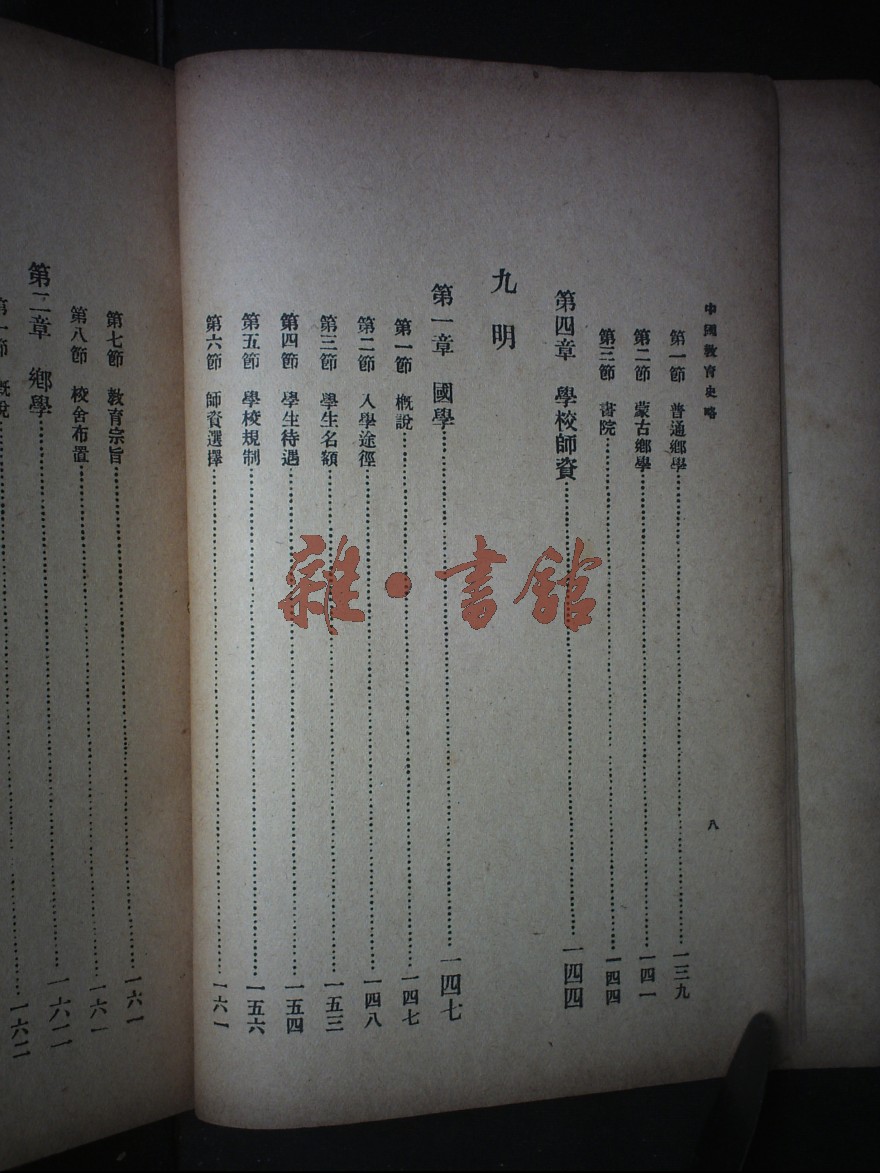 中國教育史略
第一節 普通鄉學 一三九
第二節 蒙古鄉學 一四一
第三節 書院 一四四
第四章 學校師資 一四四
九 明
第一章 國學 一四七
第一節 概說 一四七
第二節 入學途徑 一四八
第三節 學生名額 一五三
第四節 學生待遇 一五四
第五節 學校規制 一五六
第六節 師資選擇 一六一
八
第七節 教育宗旨 一六一
第八節 校舍布置 一六一
第二章 鄉學 一六二
第一節 概說 一六二
雜·書館